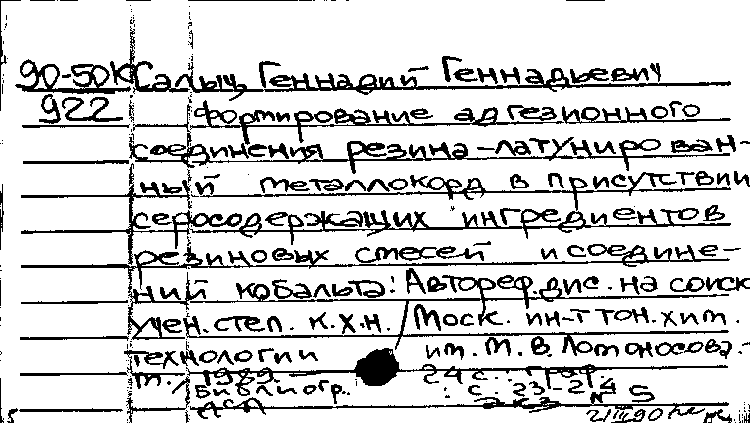 90-50К Салыч, Геннадий Геннадьевич
922 Формирование адгезионного
соединения резина-латунирован-
ный металлокорд в присутствии
серосодержащих ингредиентов
резиновых смесей и соедине-
ний кобальта: Автореф. дис. на соиск
учен. степ. к.х.н. / Моск. ин-т тон. хим.
технологии им. М. В. Ломоносова.-
М., 1989. - 24 с.: граф.
Библиогр.: с. 23-24